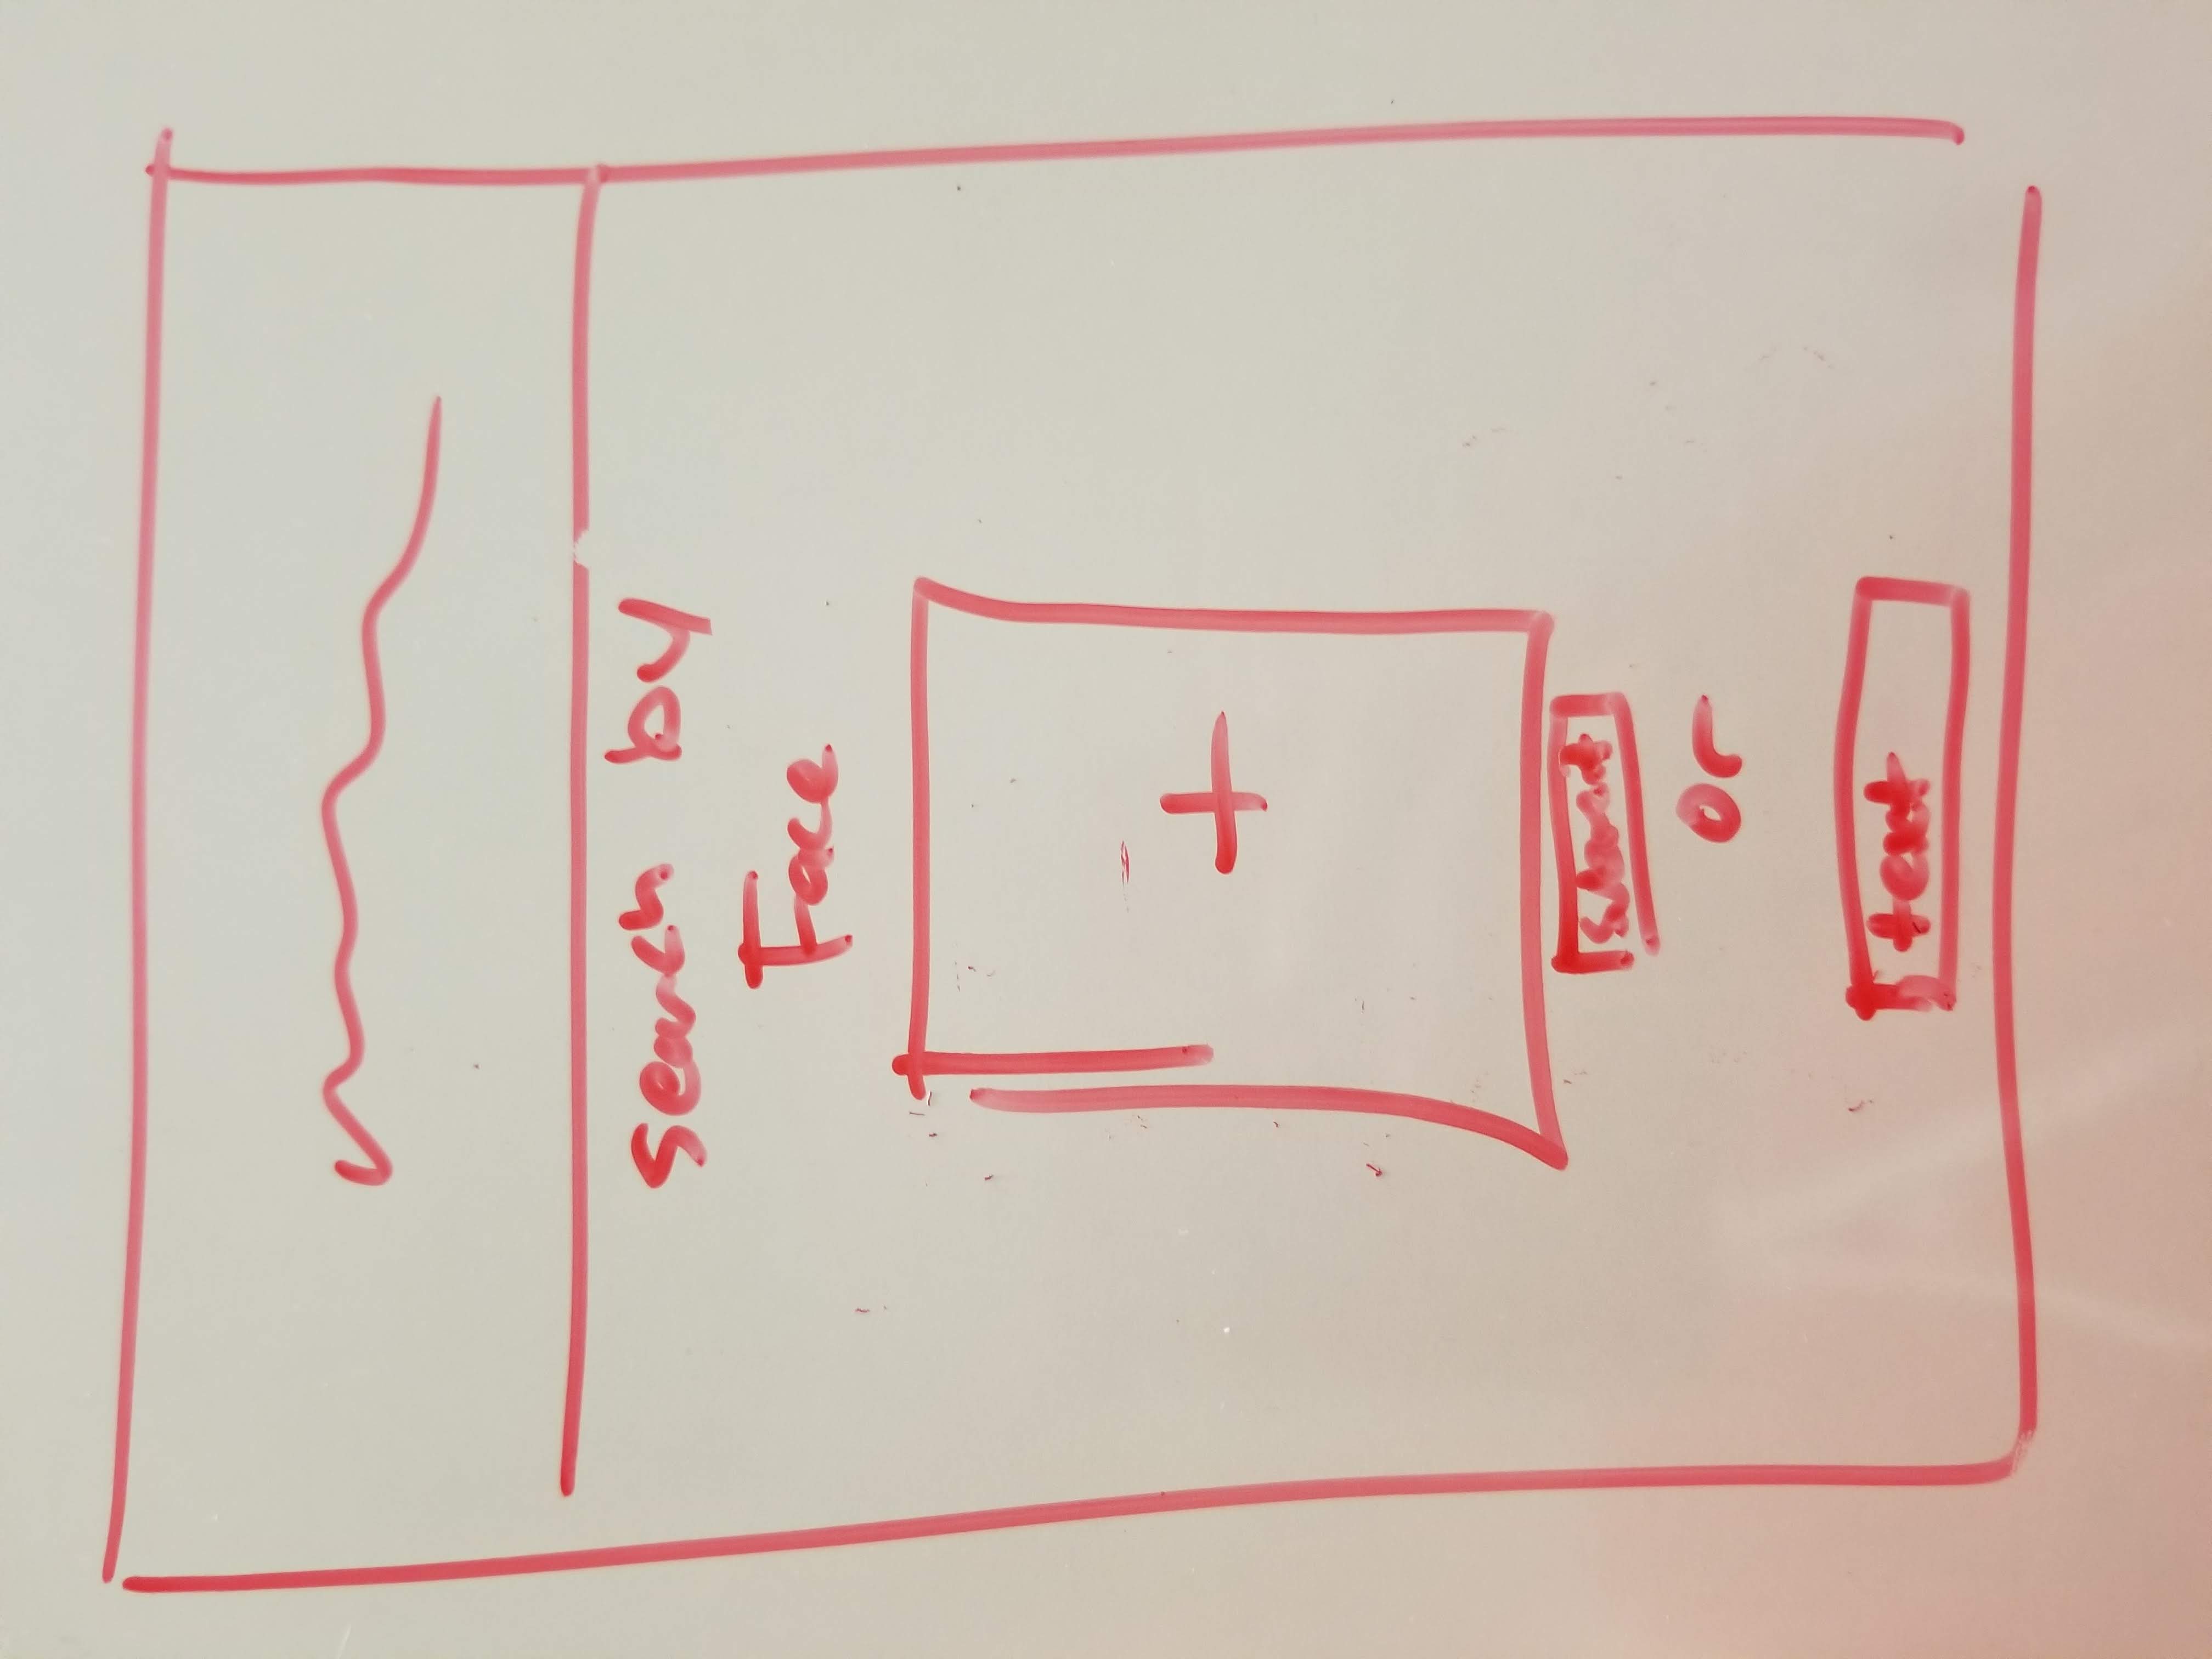 search by
Face
+
submit
or
text